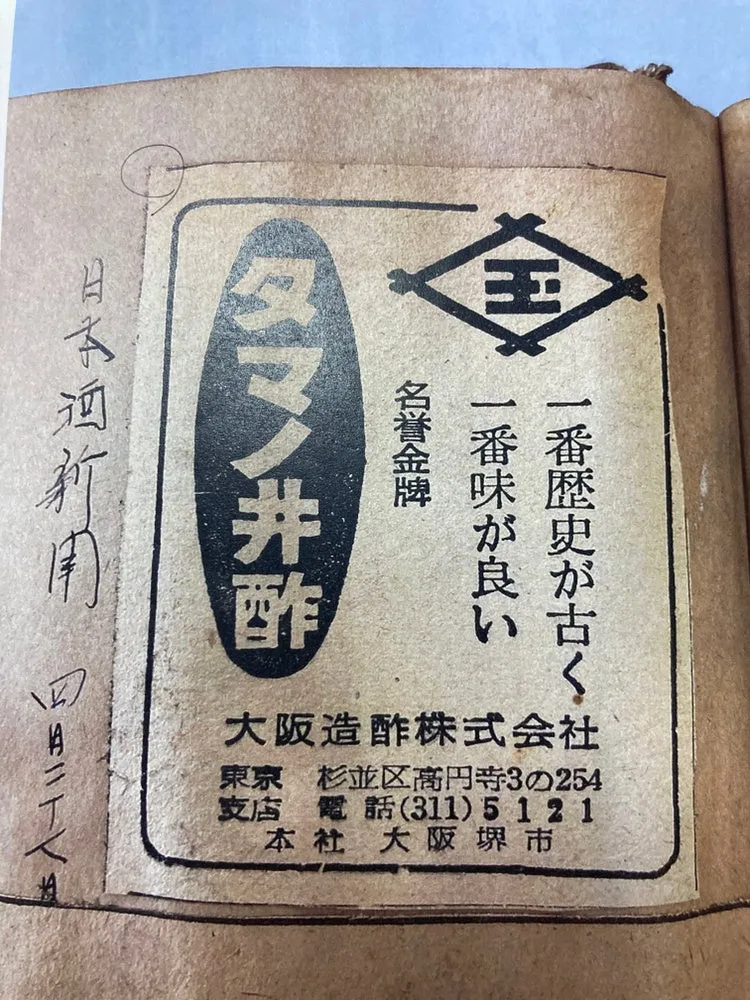 玉
一番歴史が古く
一番味が良い
名誉金牌
タマノ井酢
大阪造酢株式会社
東京支店
杉並区高円寺3の254
電話(311)5121
本社 大阪堺市
日本酒新聞 四月二十八日